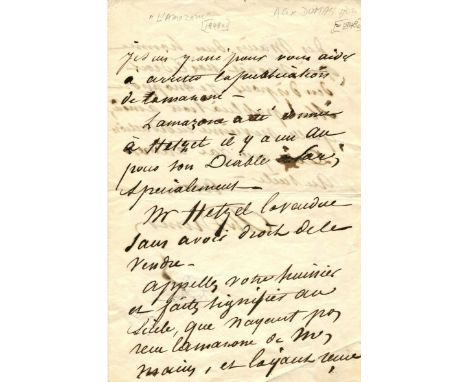 "L'AMAZONE"
ALEX DUMAS
je suis pour vous aider
à arreter la publication
de lamazone —
Lamazone a été donnée
à Hetzel il y a un an
pour son Diable
specialement —
Mr Hetzel la vendue
sans avoir droit de le
vendre —
appellez votre huissier
et faites signifier au
Siècle, que nayant pas
recu lamazone de mes
mains, et layant recue